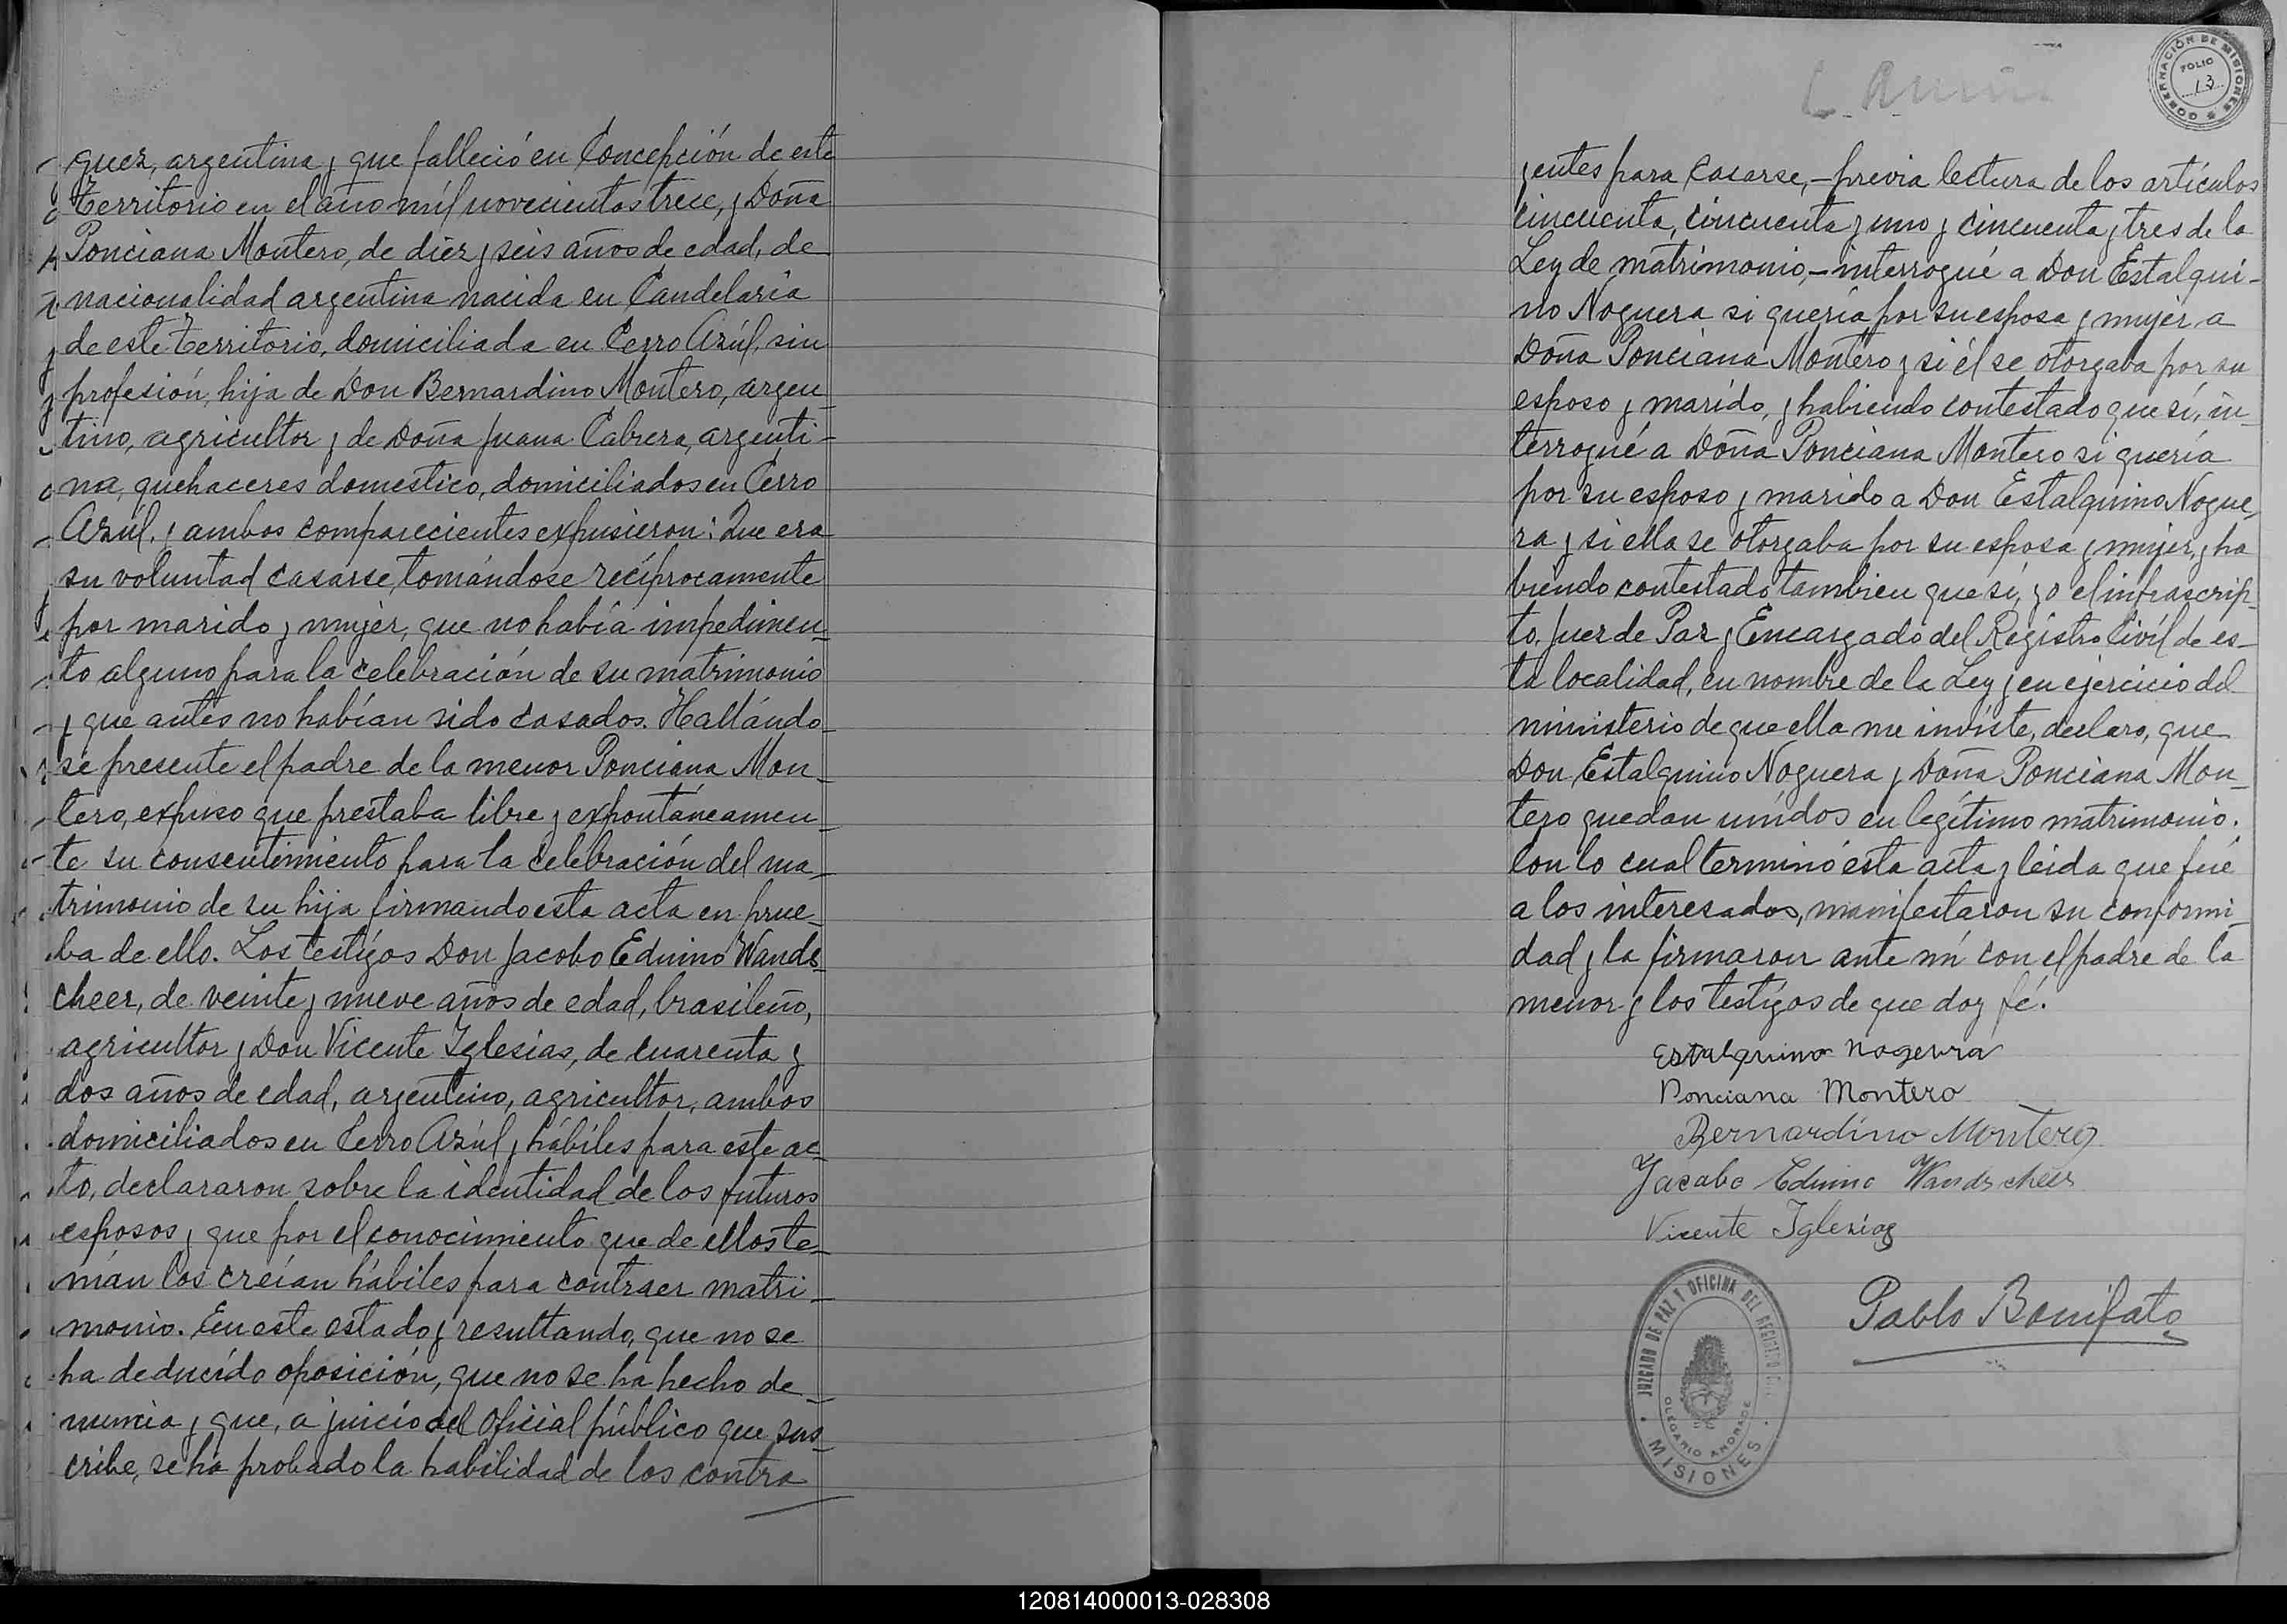 quez, argentina y que falleció en Concepción de este
Territorio en el año mil novecientos trece, y Doña
Ponciana Montero, de diez y seis años de edad, de
nacionalidad argentina nacida en Candelaria
de este Territorio, domiciliada en Cerro Azúl, sin
profesión, hija de Don Bernardino Montero, argen-
tino, agricultor y de Doña Juana Cabrera, argenti-
na, quehaceres domestico, domiciliados en Cerro
Azúl, y ambos comparecientes expusieron: Que era
su voluntad casarse, tomándose recíprocamente
por marido y mujer, que no había impedimen-
to alguno para la celebración de su matrimonio
y que antes no habían sido casados. Hallándo-
se presente el padre de la menor Ponciana Mon-
tero, expuso que prestaba libre y expontáneamen-
te su consentimiento para la celebración del ma-
trimonio de su hija firmando esta acta en prue-
ba de ello. Los testigos Don Jacobo Eduino Wands-
cheer, de veinte y nueve años de edad, brasileño,
agricultor y Don Vicente Iglesias, de cuarenta y
dos años de edad, argentino, agricultor, ambos
domiciliados en Cerro Azúl y hábiles para este ac-
to, declararon sobre la identidad de los futuros
esposos y que por el conocimiento que de ellos te-
nían los creían hábiles para contraer matri-
monio. En este estado y resultando, que no se
ha deducido oposición, que no se ha hecho de-
nuncia y que, a juicio del Oficial público que sus-
cribe, se ha probado la habilidad de los contra
GOBERNACIÓN DE MISIONES
FOLIO
13
yentes para casarse,-previa lectura de los artículos
cincuenta, cincuenta y uno y cincuenta y tres de la
Ley de matrimonio,-interrogué a Don Estalqui-
no Noguera si quería por su esposa y mujer a
Doña Ponciana Montero y si él se otorgaba por su
esposo y marido, y habiendo contestado que sí, in-
terrogué a Doña Ponciana Montero si quería
por su esposo y marido a Don Estalquino Nogue-
ra y si ella se otorgaba por su esposa y mujer, y ha
biendo contestado tambien que sí, yo el infrascrip-
to, Juez de Paz y Encargado del Registro Civíl de es-
ta localidad, en nombre de la Ley y en ejercicio del
ministerio de que ella me inviste, declaro, que
Don Estalquino Noguera y Doña Ponciana Mon-
tero quedan unídos en legítimo matrimonio.
Con lo cual terminó esta acta y leida que fué
a los interesados, manifestaron su conformi-
dad y la firmaron ante mí con el padre de la
menor y los testigos de que doy fé.
Estalquino Nogerra
Ponciana Montero
Bernardino Montero
Jacabo Eduino Wandscheer
Vicente Iglesias
Pablo Bonifato
JUZGADO DE PAZ Y OFICINA DEL REGISTRO CIVIL
OLEGARIO ANDRADE
MISIONES
120814000013-028308